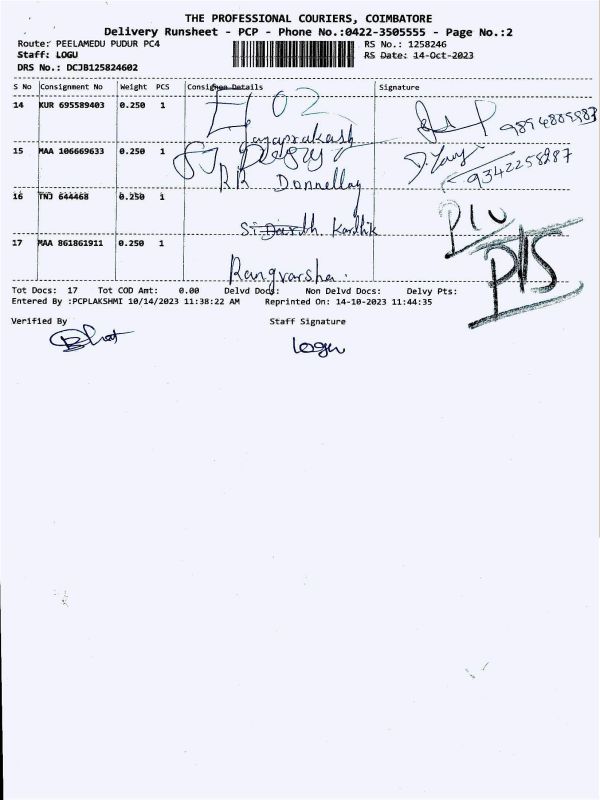 THE PROFESSIONAL COURIERS, COIMBATORE
Delivery Runsheet - PCP - Phone No.:0422-3505555 - Page No.:2
Route: PEELAMEDU PUDUR PC4 RS No.: 1258246
Staff: LOGU RS Date: 14-Oct-2023
DRS No.: DCJB125824602
S No Consignment No Weight PCS Consignee Details Signature
14 KUR 695589403 0.250 1 02
Jayaprakash
15 MAA 106669633 0.250 1
RR Donnelley 9342258287
16 TNJ 644468 0.250 1
Kardhik
17 MAA 861861911 0.250 1
Rangvarsha.
Tot Docs: 17 Tot COD Amt: 0.00 Delvd Docs: Non Delvd Docs: Delvy Pts:
Entered By :PCPLAKSHMI 10/14/2023 11:38:22 AM Reprinted On: 14-10-2023 11:44:35
Verified By Staff Signature
Logu